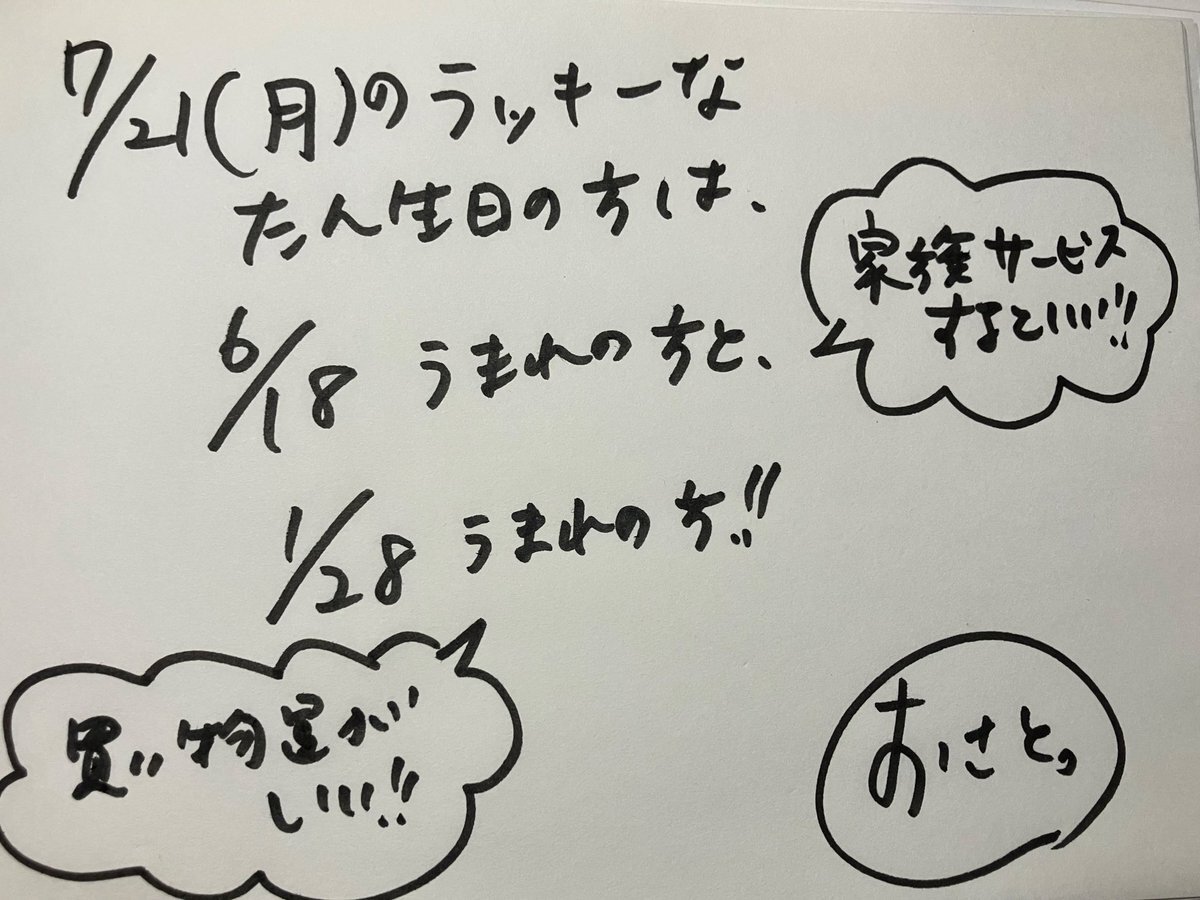 7/21(月)のラッキーな
たん生日の方は、
家族サービス
するといい!!
6/18 うまれの方と、
1/28 うまれの方!!
買い物運が
いい!!
おさとっ